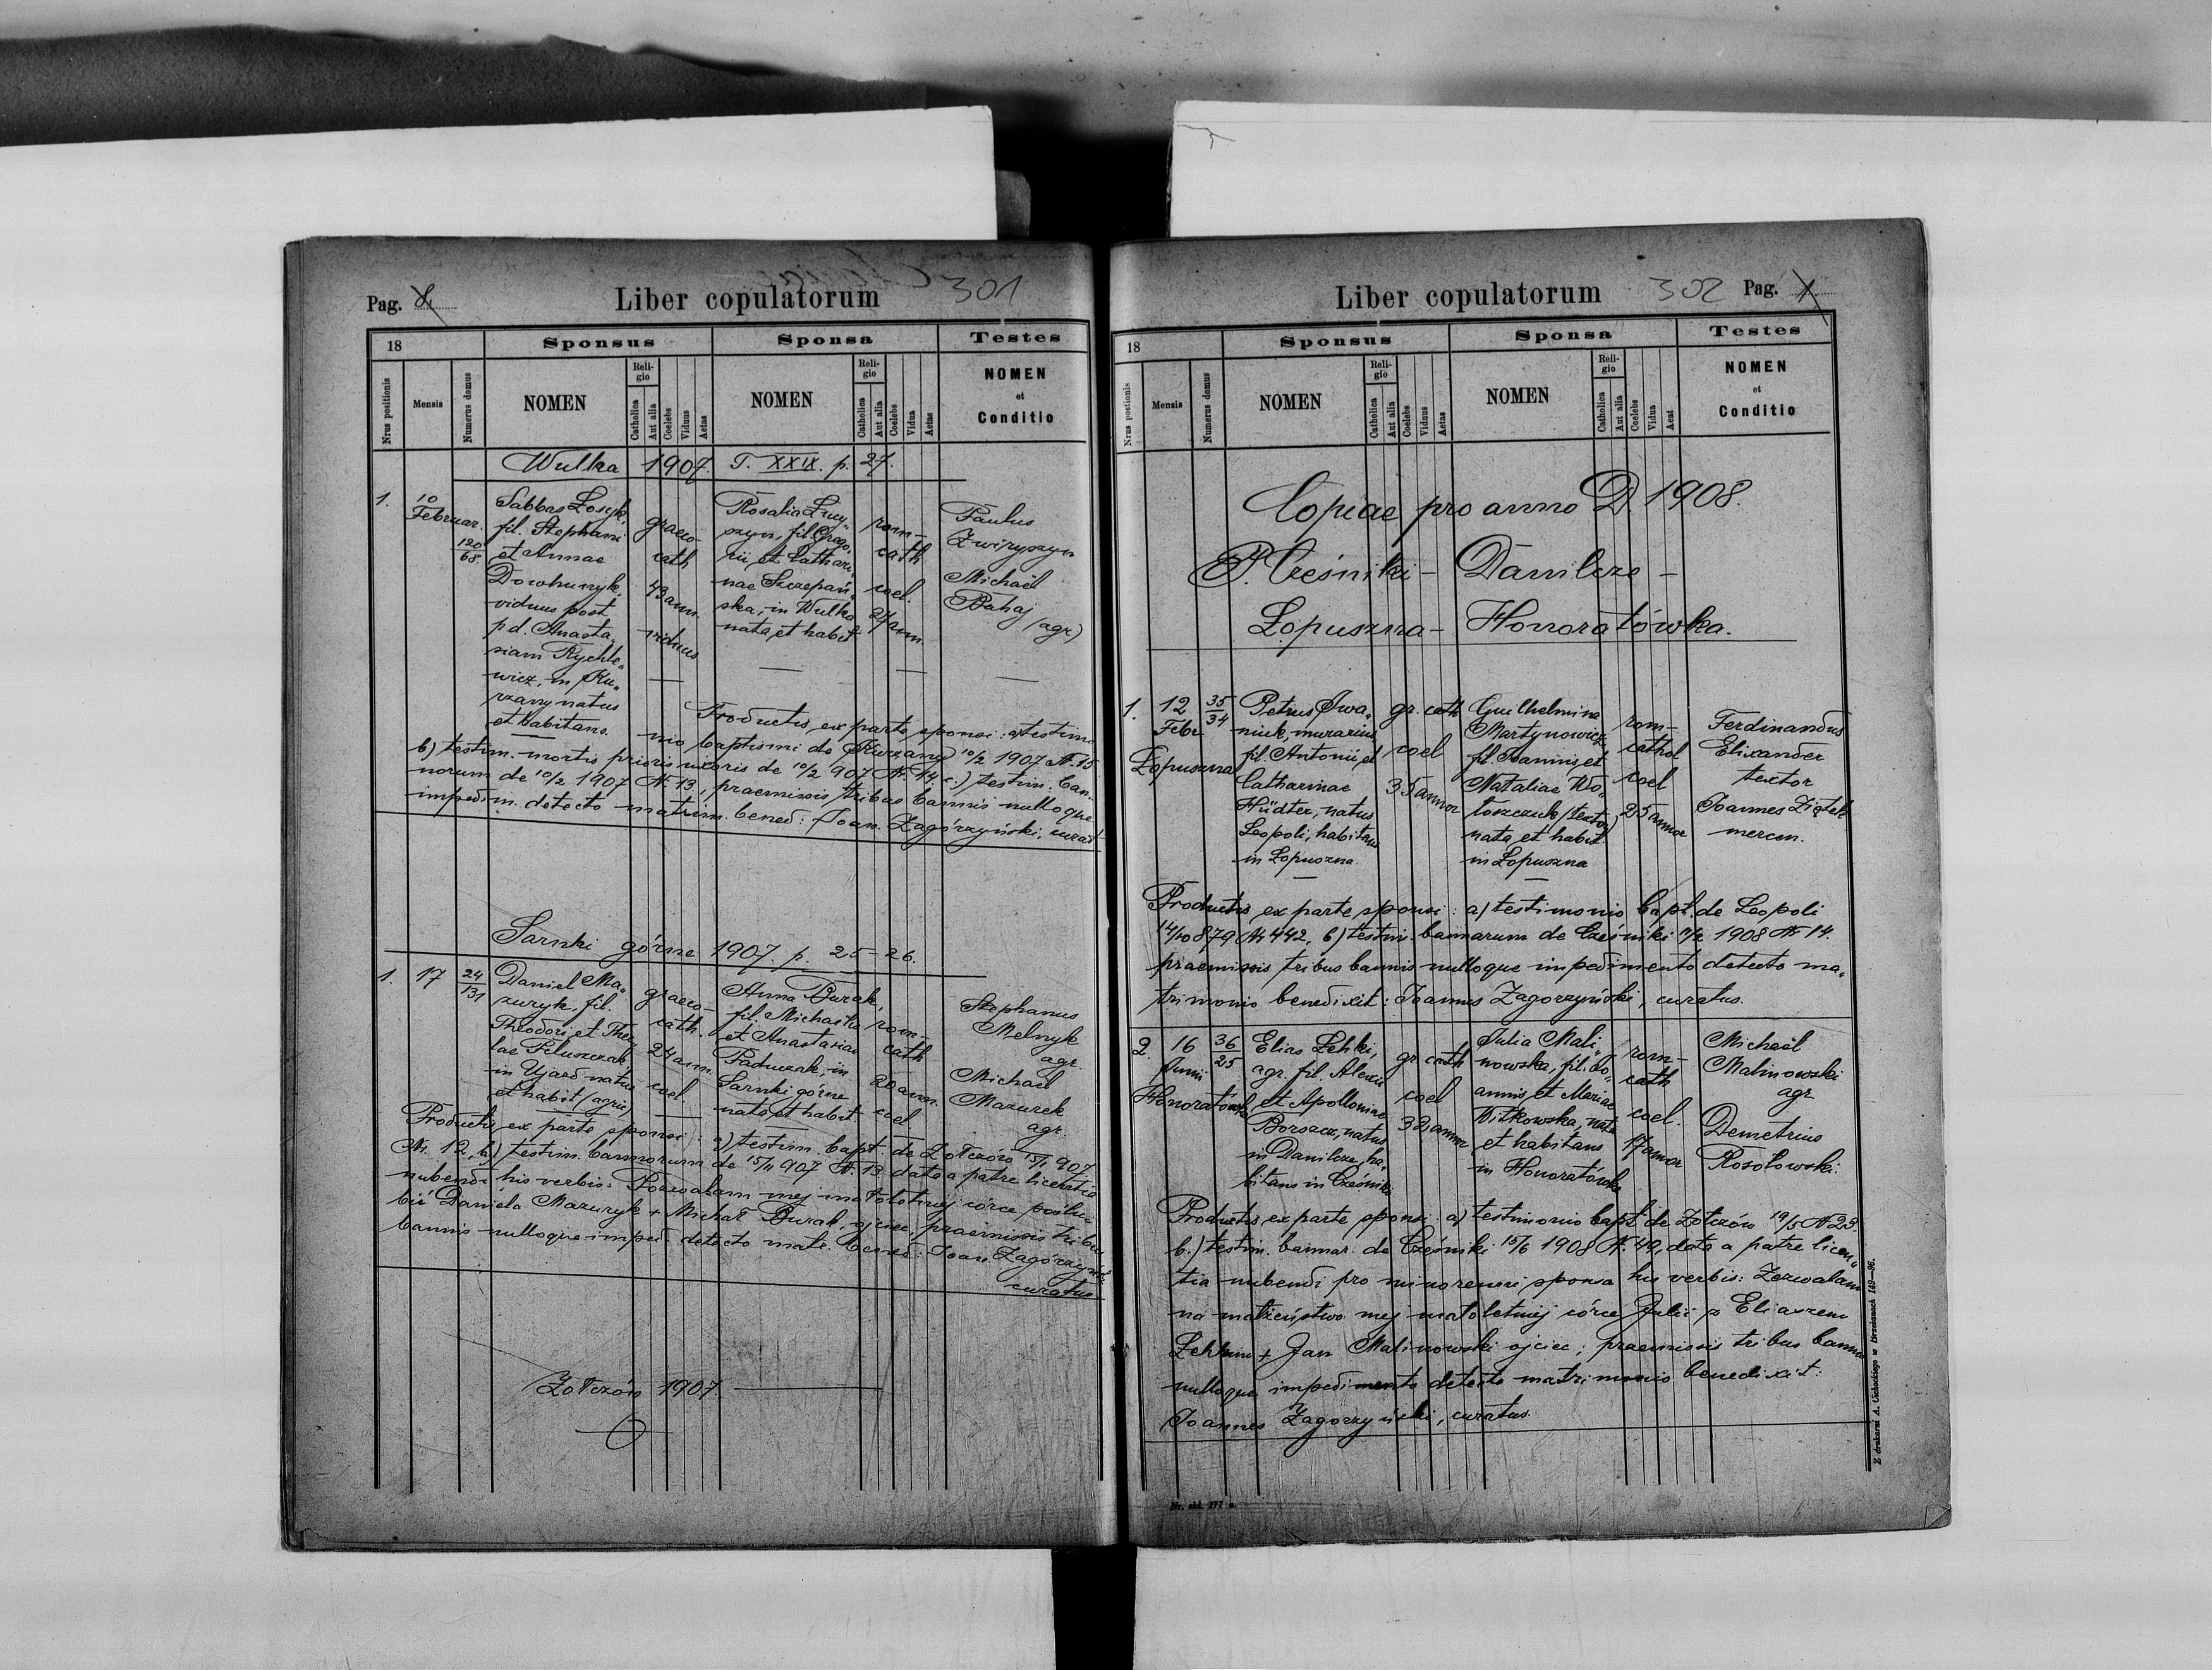 Pag. 8
Liber copulatorum
301
18
Sponsus
Sponsa
Testes
Nrus positionis
Mensis
Numerus domus
NOMEN
Religio
Catholica
Aut alia
Coelebs
Viduus
Aetas
NOMEN
Religio
Catholica
Aut alia
Coelebs
Vidua
Aetas
NOMEN
et
Conditio
Wulka 1907. T. XXIX. p. 27.
1.
10
Februar.
120
68.
Sabbas Łosyk,
fil. Stephani
et Annae
Dowhunyk,
viduus post
p d. Anasta„
siam Rychle„
wicz, in Ku„
rzany natus
et habitans.
graeco-
cath
43 ann.
viduus
Rosalia Łucy„
szyn, fil. Grego„
rii et Cathari„
nae Szczepań„
ska, in Wulka
nata et habit
rom-
cath
coel.
21 ann
Paulus
Zwiryszyn
Michaël
Bahaj
(agr)
Productis ex parte sponsi: a) testimo
nio baptismi de Kurzany 10/2 1907 N. 15
b) testim. mortis prioris uxoris de 10/2 907 N. 14 c.) testim. ban„
norum de 10/2 1907 N. 13, praemissis tribus bannis nulloque
impedim. detecto matrim. bened: Joan. Zagórzyński, curat
Sarnki górne 1907. p. 25-26.
1.
17
24
131
Daniel Ma„
zuryk, fil.
Theodori et Thec
lae Pełuszczak,
in Ujazd natus
et habit (agric)
graeco-
cath.
24 ann.
coel
Anna Burak,
fil. Michaëlis
et Anastasiae
Paduczak, in
Sarnki górne
nata et habit.
rom-
cath
20 ann.
coel
Stephanus
Melnyk
agr.
Michaël
Mazurek
agr.
Productis ex parte sponsi: a) testim. bapt. de Żołczów 15/1 907
N. 12, b) testim. bannorum de 15/1 907 N. 13 data a patre licentia
nubendi his verbis: Pozwalam mej małoletniej córce poślu„
bić Daniela Mazuryk + Michał Burak, ojciec, praemissis tribus
bannis nulloque imped. detecto matr. bened: Joan. Zagórzyński
curatus
Żołczów 1907.
Liber copulatorum
302
Pag. 1
18
Sponsus
Sponsa
Testes
Nrus postionis
Mensis
Numerus domus
NOMEN
Religio
Catholica
Aut alia
Coelebs
Viduus
Aetas
NOMEN
Religio
Catholica
Aut alia
Coelebs
Vidua
Aeat
NOMEN
et
Conditio
Copiae pro anno D. 1908.
P. Cześniki - Danilcze -
Łopuszna - Honoratówka.
1.
12
Febr
Łopuszna
35
34
Petrus Iwa„
niuk, murarius
fil. Antonii et
Catharinae
Hüdter, natus
Leopoli, habitans
in Łopuszna
gr. cath
coel
35 annor
Guilhelmina
Martynowicz
fil. Joannis et
Nataliae Wo„
łoszczuk (textor)
nata et habit.
in Łopuszna
rom-
cathol
coel
25 annor
Ferdinandus
Elixander
textor
Joannes Ziątek
mercen.
Productis ex parte sponsi: a) testimonio bapt. de Leopoli
14/10 879 N. 442, b) testim. bannarum de Cześniki 11/2 1908 N. 14.
praemissis tribus bannis nulloque impedimento detecto ma„
trimonio benedixit: Joannes Zagorzyński, curatus.
2.
16
Junii
Honoratówka
36
25
Elias Lehki,
agr. fil. Alexii
et Apolloniae
Borszcz, natus
in Danilcze ha„
bitans in Cześniki
gr cath
coel
32 annor
Julia Mali
nowska, fil. Jo„
annis et Mariae
Witkowska, nata
et habitans
in Honoratówka
rom-
cath
coel.
17 annor
Michaël
Malinowski
agr
Demetrius
Rosołowski.
Productis ex parte sponsi: a) testimonio bapt. de Żołczów 19/5 N 23
b.) testim. bannar. de Cześniki 15/6 1908 N. 49, data a patre licen„
tia nubendi pro minorenni sponsa his verbis: Zezwalam
na małżeństwo mej małoletniej córce Julii z Eliaszem
Lehkim + Jan Malinowski ojciec; praemissis tribus bannis
nulloque impedimento detecto matrimonio benedixit:
Joannes Zagorzyński, curatus.
Z drukarni A. Uchackiego w Brzeżanach 149—96.
Nr. skl. 177 a.